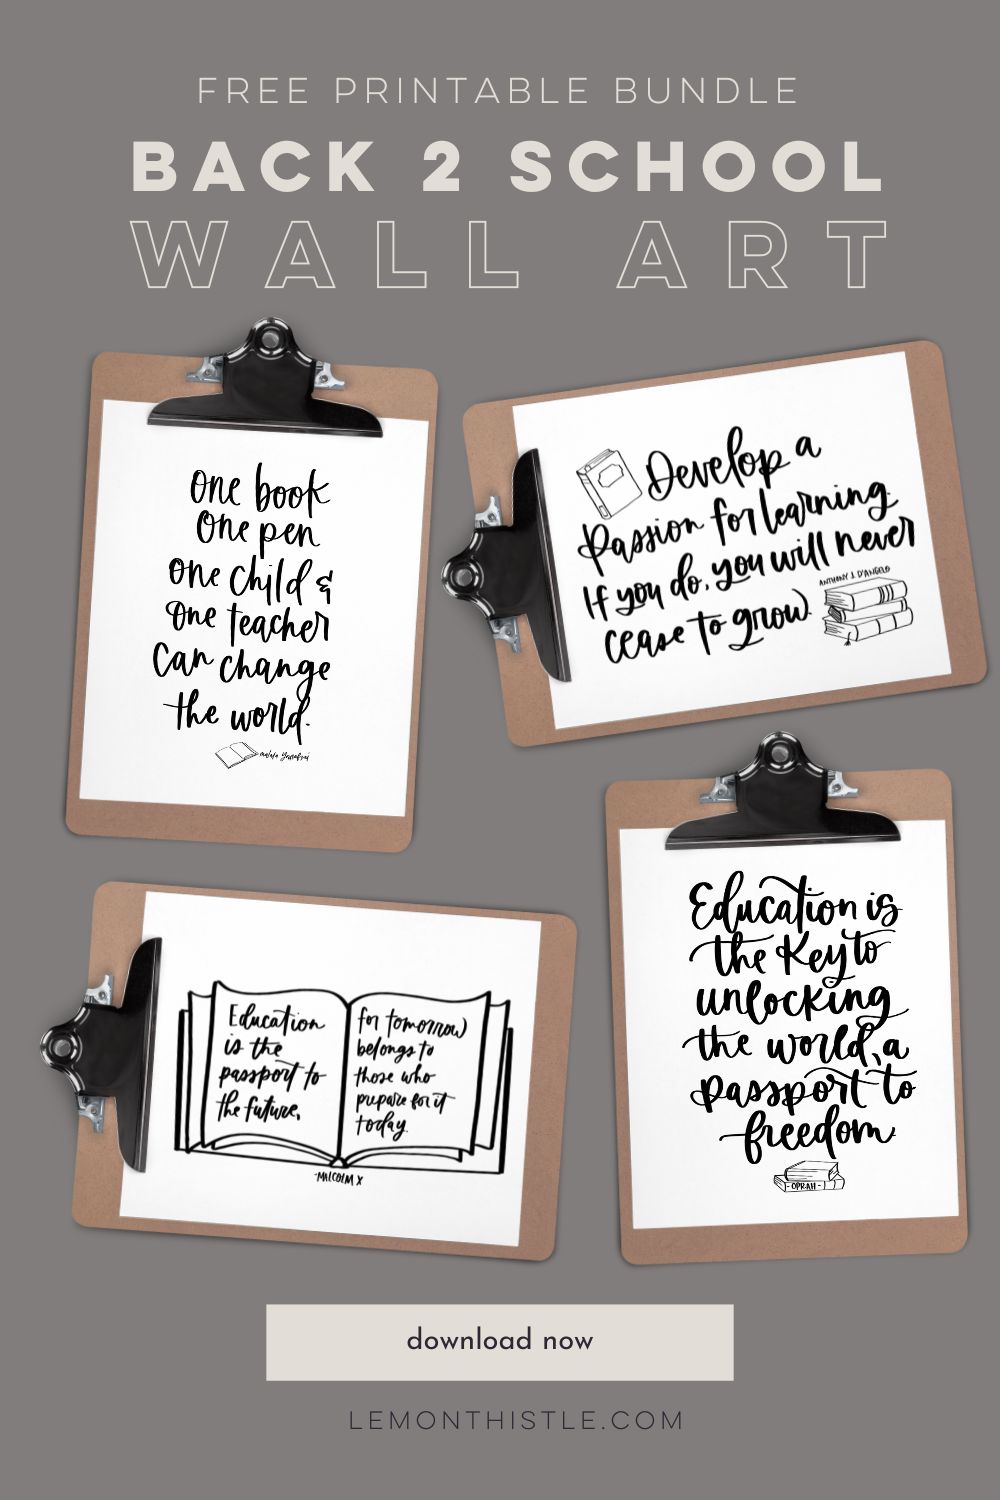 FREE PRINTABLE BUNDLE
BACK 2 SCHOOL
WALL ART
One book
One pen
One child &
One teacher
Can change
the world.
malala Yousafzai
Develop a
Passion for learning.
If you do, you will never
cease to grow.
ANTHONY J. D'ANGELO
Education
is the
passport to
the future,
for tomorrow
belongs to
those who
prepare for it
today.
-MALCOLM X
Education is
the Key to
unlocking
the world, a
passport to
freedom.
- OPRAH -
download now
LEMONTHISTLE.COM